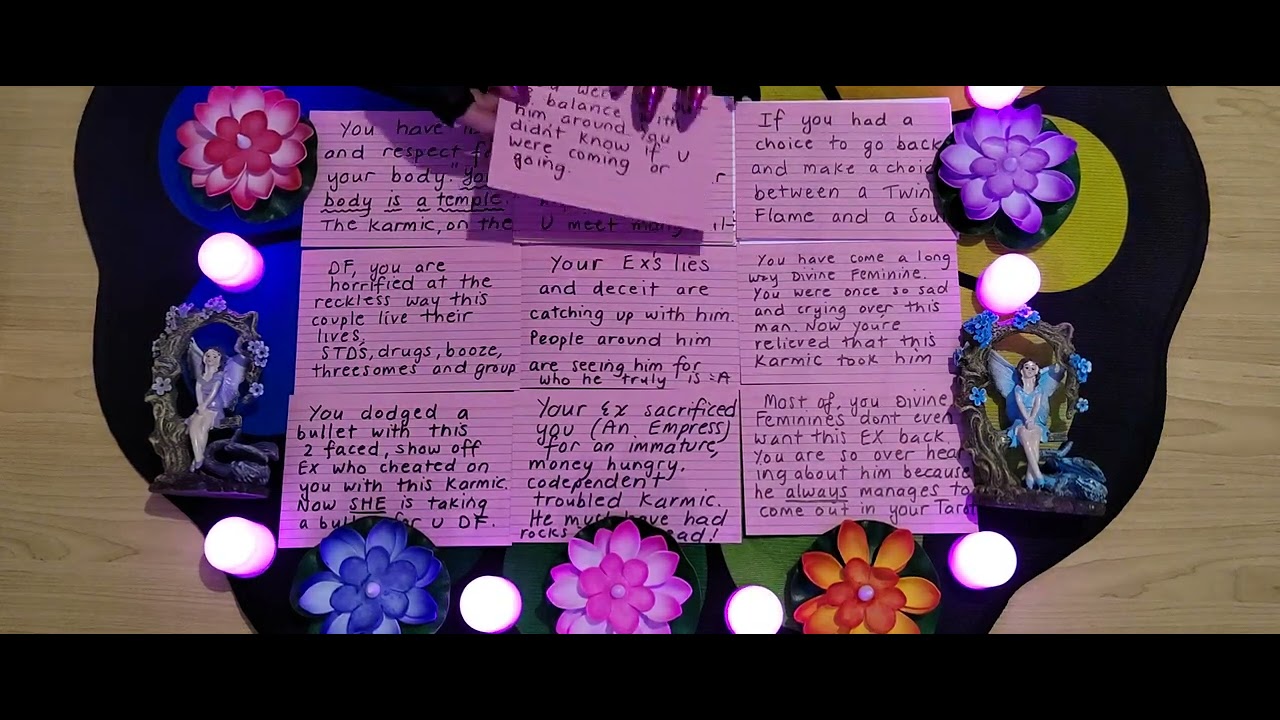 You have
and respect
your body.
body is a temple.
The Karmic, on the
balance
him around
didn't know if U
were coming or
going.
U meet many
If you had a
choice to go back
and make a choi
between a Twin
Flame and a Soul
DF, you are
horrified at the
reckless way this
couple live their
lives,
STDS, drugs, booze,
threesomes and group
Your Ex's lies
and deceit are
catching up with him.
People around him
are seeing him for
who he truly is
You have come a long
way Divine Feminine.
You were once so sad
and crying over this
man. Now youre
relieved that this
Karmic took him
You dodged a
bullet with this
2 faced, show off
Ex who cheated on
you with this Karmic.
Now SHE is taking
a bullet for U DF.
Your Ex sacrificed
you (An Empress)
for an immature,
money hungry,
codependent
troubled Karmic.
He must have had
rocks head!
Most of, you Divine
Feminines dont even
want this EX back.
You are so over hear
ing about him because
he always manages to
come out in your Tarot